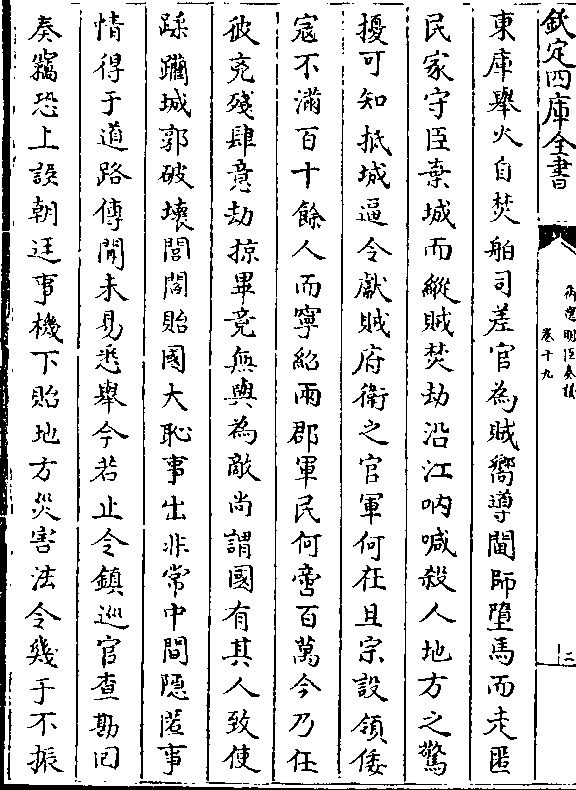 欽定四庫全書
御選明臣奏議
卷十九
三
東庫舉火自焚舶司差官為賊嚮導閫師墮馬而走匿
民家守臣棄城而縱賊焚劫沿江吶喊殺人地方之驚
擾可知抵城逼令獻賊府衛之官軍何在且宗設領倭
寇不滿百十餘人而寧紹兩郡軍民何啻百萬今乃任
彼兇殘肆意劫掠畢竟無與為敵尚謂國有其人致使
蹂躪城郭破壞閭閻貽國大恥事出非常中間隱匿事
情得于道路傳聞未易悉舉今若止令鎮巡官查勘回
奏竊恐上誤朝廷事機下貽地方災害法令幾于不振